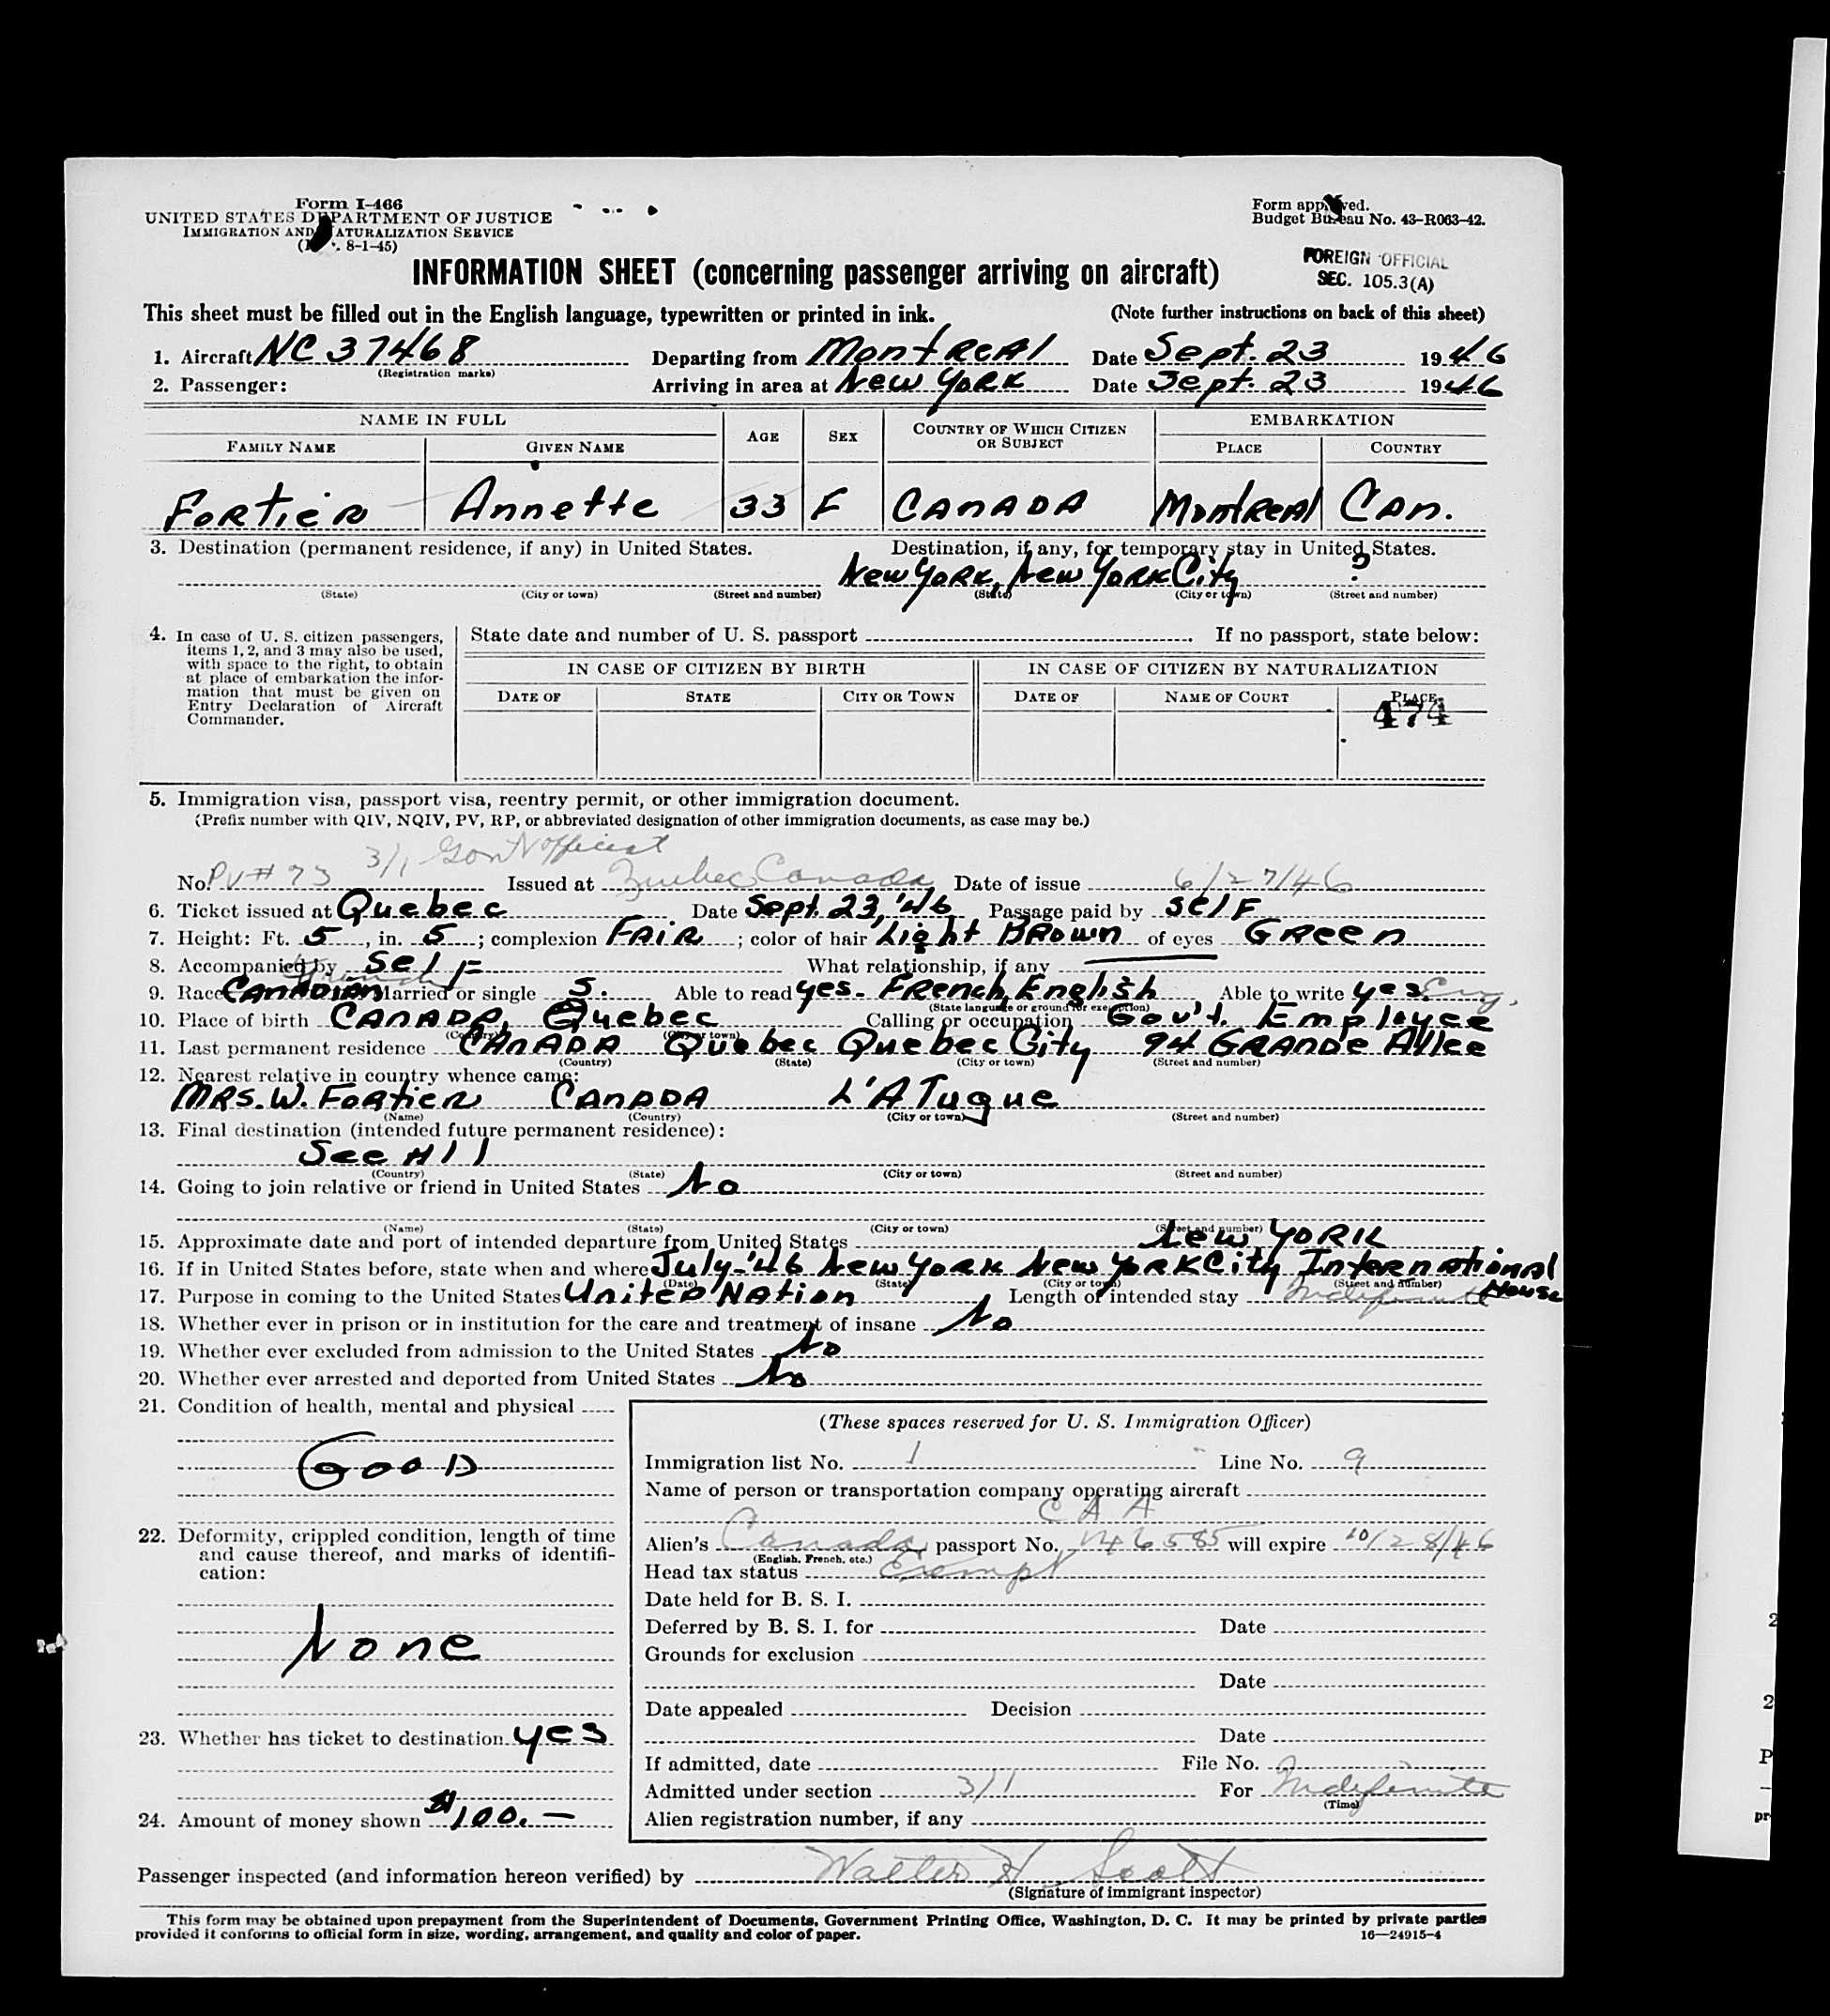 Form I-466
UNITED STATES DEPARTMENT OF JUSTICE
IMMIGRATION AND NATURALIZATION SERVICE
8-1-45)
Form approved.
Budget Bureau No. 43-R063-42.
FOREIGN OFFICIAL
SEC. 105.3(A)
INFORMATION SHEET (concerning passenger arriving on aircraft)
This sheet must be filled out in the English language, typewritten or printed in ink. (Note further instructions on back of this sheet)
1. Aircraft NC 37468 Departing from Montreal Date Sept. 23 1946
(Registration marks)
2. Passenger: Arriving in area at New York Date Sept. 23 1946
NAME IN FULL AGE SEX COUNTRY OF WHICH CITIZEN OR SUBJECT EMBARKATION
FAMILY NAME GIVEN NAME PLACE COUNTRY
Fortier Annette 33 F CANADA Montreal Can.
3. Destination (permanent residence, if any) in United States. Destination, if any, for temporary stay in United States.
New York, New York City ?
(State) (City or town) (Street and number) (State) (City or town) (Street and number)
4. In case of U. S. citizen passengers, items 1, 2, and 3 may also be used, with space to the right, to obtain at place of embarkation the information that must be given on Entry Declaration of Aircraft Commander.
State date and number of U. S. passport . If no passport, state below:
IN CASE OF CITIZEN BY BIRTH IN CASE OF CITIZEN BY NATURALIZATION
DATE OF STATE CITY OR TOWN DATE OF NAME OF COURT PLACE
474
5. Immigration visa, passport visa, reentry permit, or other immigration document.
(Prefix number with QIV, NQIV, PV, RP, or abbreviated designation of other immigration documents, as case may be.)
3/1 Gov't Official
No. PV# 73 Issued at Quebec Canada Date of issue 6/27/46
6. Ticket issued at Quebec Date Sept. 23, '46 Passage paid by self
7. Height: Ft. 5, in. 5; complexion Fair; color of hair Light Brown of eyes Green
8. Accompanied by Self What relationship, if any
French
9. Race Canadian Married or single S. Able to read yes - French, English Able to write yes. Eng.
(State language or ground for exemption)
10. Place of birth CANADA, Quebec Calling or occupation Gov't. Employee
(Country) (City or town)
11. Last permanent residence CANADA Quebec Quebec City 94 GRANDE Allee
(Country) (State) (City or town) (Street and number)
12. Nearest relative in country whence came:
MRS. W. Fortier CANADA L'A Tuque
(Name) (Country) (City or town) (Street and number)
13. Final destination (intended future permanent residence):
See #11
(Country) (State) (City or town) (Street and number)
14. Going to join relative or friend in United States No
(Name) (State) (City or town) (Street and number)
15. Approximate date and port of intended departure from United States New YORK
16. If in United States before, state when and where July-'46 New York New York City International House
(Date) (State) (City or town) (Street and number)
17. Purpose in coming to the United States United Nation Length of intended stay Indefinite
18. Whether ever in prison or in institution for the care and treatment of insane No
19. Whether ever excluded from admission to the United States No
20. Whether ever arrested and deported from United States No
21. Condition of health, mental and physical
GOOD
22. Deformity, crippled condition, length of time and cause thereof, and marks of identification:
None
23. Whether has ticket to destination yes
24. Amount of money shown $100.—
(These spaces reserved for U. S. Immigration Officer)
Immigration list No. 1 Line No. 9
Name of person or transportation company operating aircraft
C A A
Alien's Canada passport No. will expire 10/28/46
(English, French, etc.)
Head tax status Exempt
Date held for B. S. I.
Deferred by B. S. I. for Date
Grounds for exclusion
Date
Date appealed Decision
Date
If admitted, date File No.
Admitted under section 3/1 For Indefinite
(Time)
Alien registration number, if any
Passenger inspected (and information hereon verified) by Walter H Scott
(Signature of immigrant inspector)
This form may be obtained upon prepayment from the Superintendent of Documents, Government Printing Office, Washington, D. C. It may be printed by private parties
provided it conforms to official form in size, wording, arrangement, and quality and color of paper. 16—24915-4